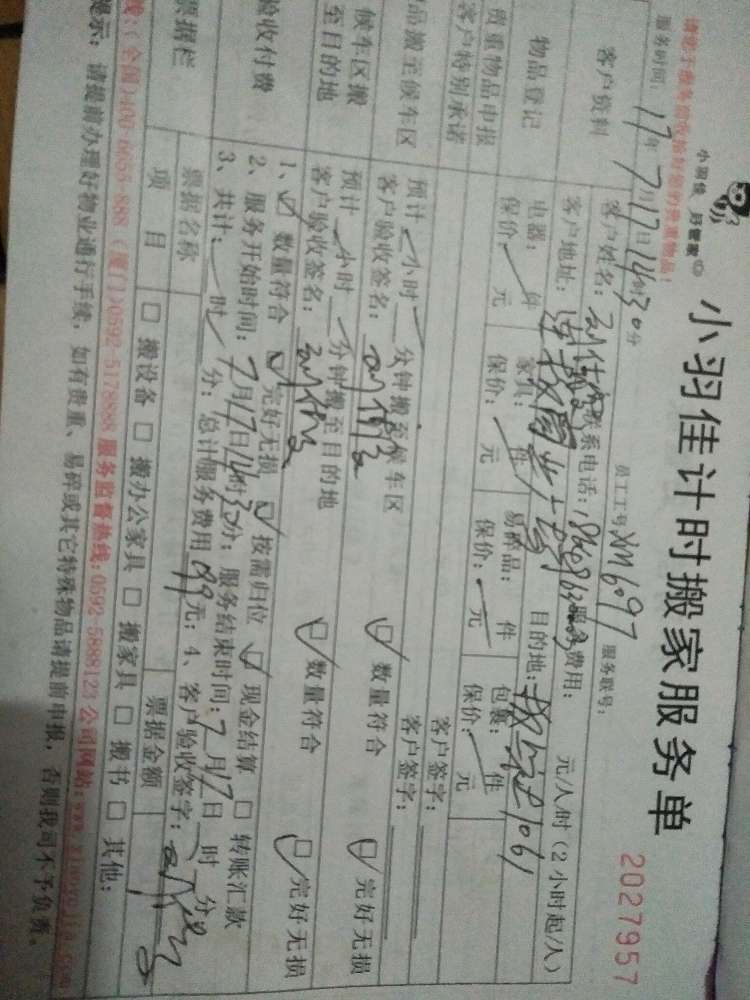 小羽佳 好管家
小羽佳计时搬家服务单
请您于服务前收拾好您的贵重物品!
2027957
服务时间: 17年7月17日14时30分 员工工号XM6097 服务联号:
客户资料
客户姓名: 联系电话: 服务费用: 元/人/时(2小时起/人)
客户地址: 目的地:
物品登记
电器: 件 家具: 件 易碎品: 件 包裹: 件
保价: 元 保价: 元 保价: 元 保价: 元
贵重物品申报 客户签字:
客户特别承诺 客户签字:
品搬至候车区
预计 小时 分钟搬至候车区
客户验收签名: 数量符合 完好无损
候车区搬至目的地
预计 小时 分钟搬至目的地
客户验收签名: 数量符合 完好无损
验收付费
1、 数量符合 完好无损 按需归位 现金结算 转账汇款
2、服务开始时间: 7月17日14时30分; 服务结束时间: 7月17日 时 分
3、共计: 时 分; 总计服务费用 元; 4、客户验收签字:
票据栏
票据名称 票据金额
项目 搬设备 搬办公家具 搬家具 搬书 其他:
线:(全国)400-6055-888 (厦门)0592-5178888 服务监督热线:0592-5888123 公司网站:www.xiaoyujia.com
提示: 请提前办理好物业通行手续, 如有贵重、易碎或其它特殊物品请提前申报, 否则我司不予负责。